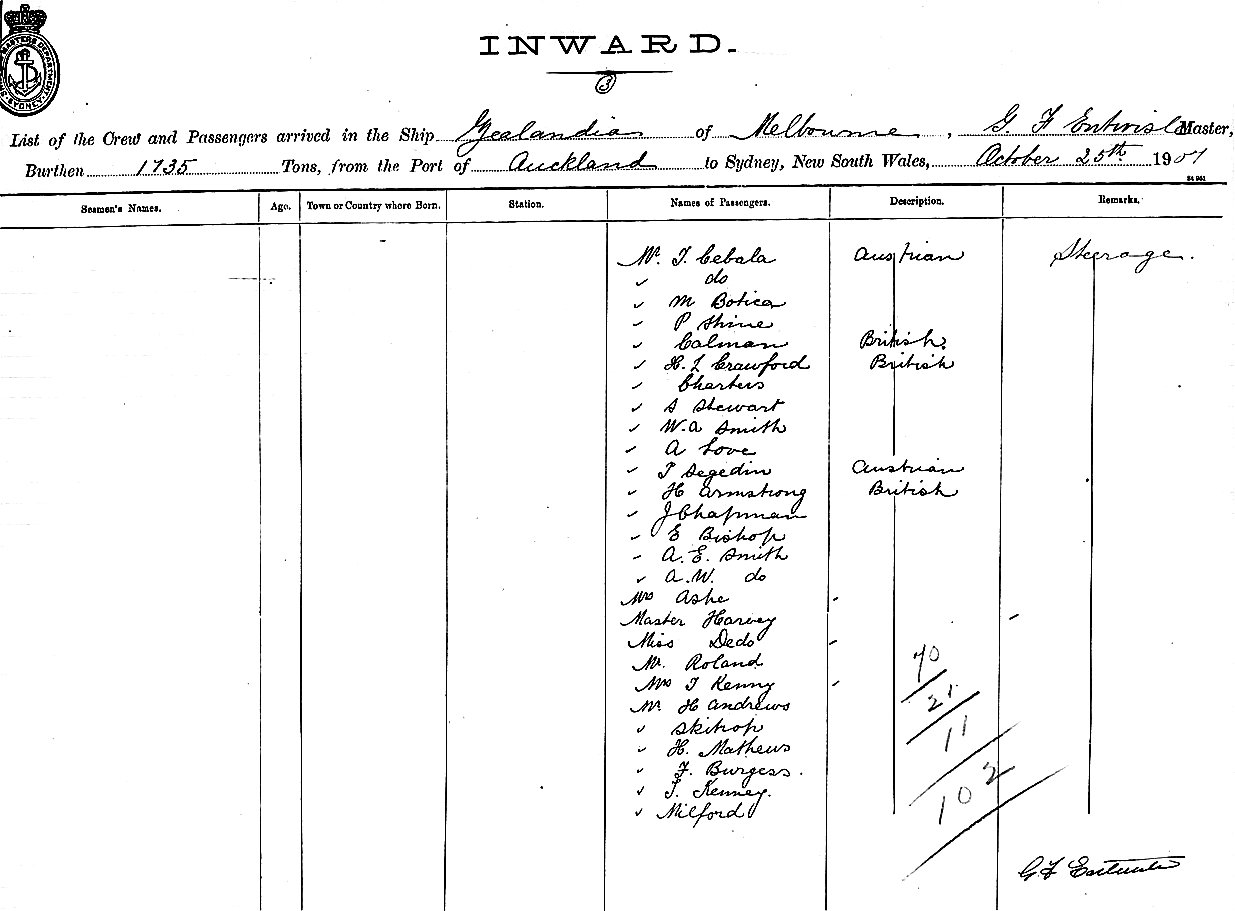 INWARD.
3
List of the Crew and Passengers arrived in the Ship Zealandia of Melbourne, G. F Entwisle Master,
Burthen 1735 Tons, from the Port of Auckland to Sydney, New South Wales, October 25th 1901
Seamen's Names. Age. Town or Country where Born. Station. Names of Passengers. Description. Remarks.
Mr. T. Cebala Austrian Steerage.
✓ do
✓ M Botica
✓ P Shine
✓ Calman British
✓ H. L Crawford British
✓ Charters
✓ S Stewart
✓ W. A Smith
✓ A Love
✓ T Segedin Austrian
✓ H Armstrong British
✓ J Chapman
✓ E Bishop
✓ A. E. Smith
✓ A. W. do
Mrs Ashe
Master Harvey
Miss Dedo
Mr. Roland
Mrs T Kenny
Mr. H Andrews
✓ Skitrop
✓ H. Mathews
✓ F. Burgess.
✓ T. Kenney.
✓ Milford
70
21
11
102
G F